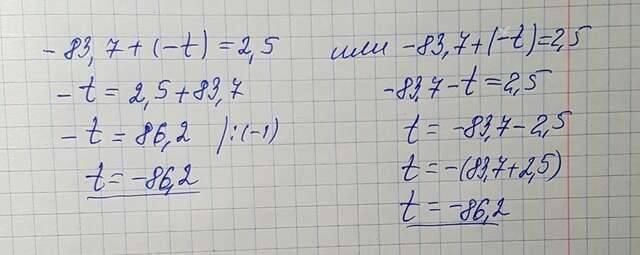 -83,7+(-t)=2,5
-t=2,5+83,7
-t=86,2 |:(-1)
t=-86,2
или -83,7+(-t)=2,5
-83,7-t=2,5
t=-83,7-2,5
t=-(83,7+2,5)
t=-86,2